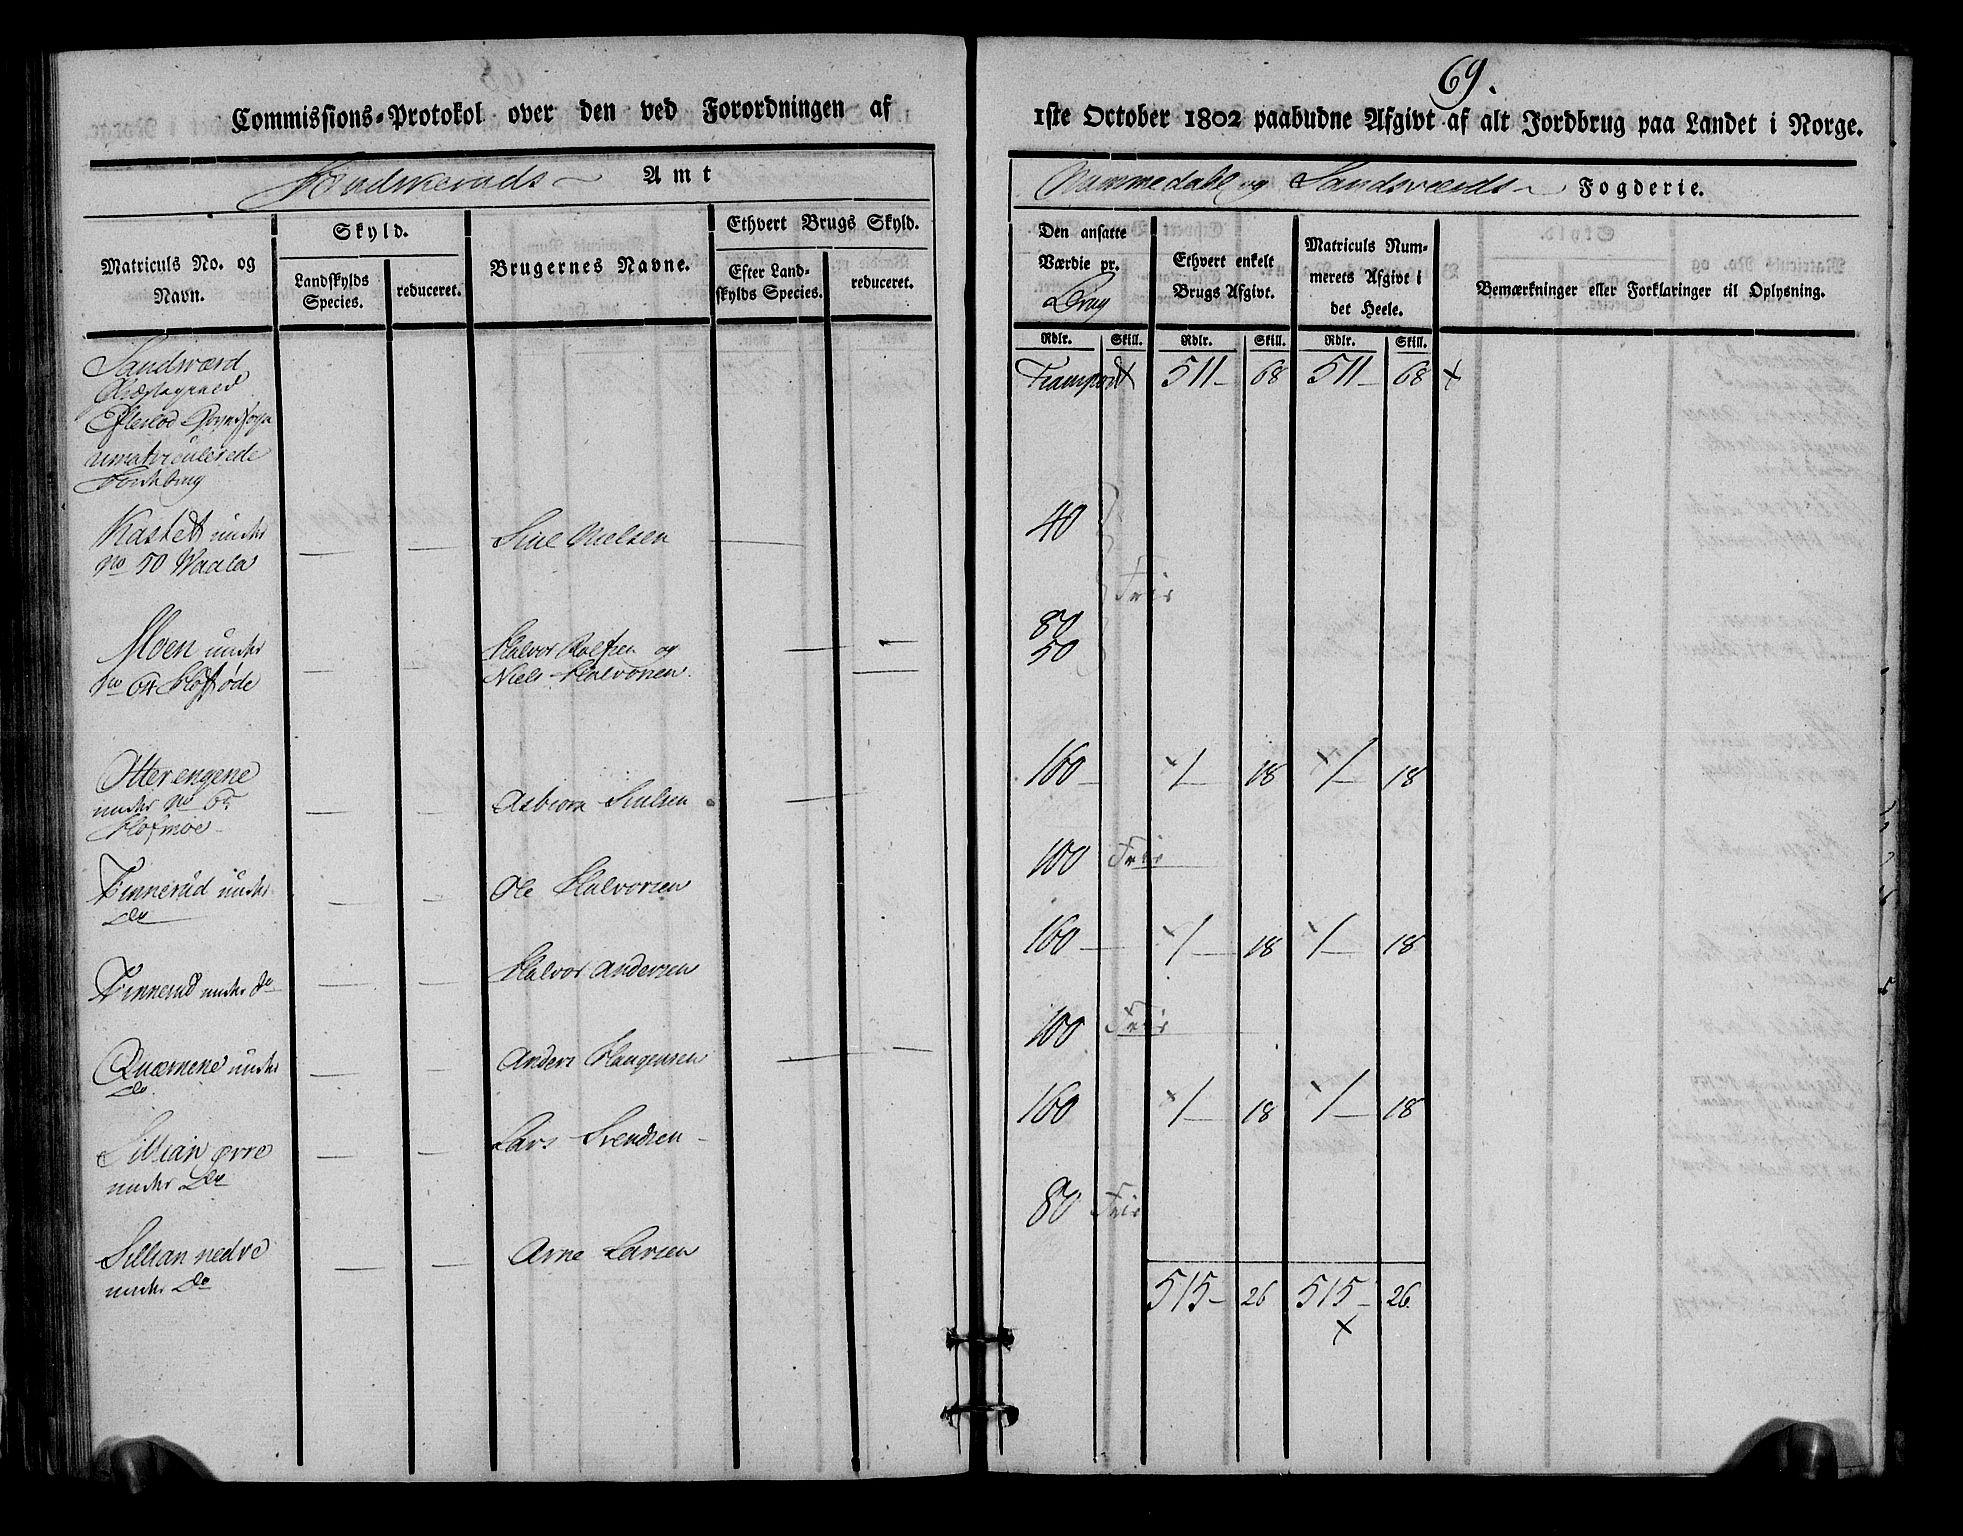 69.
Commissions-Protokol over den ved Forordningen af
1ste October 1802 paabudne Afgivt af alt Jordbrug paa Landet i Norge.
Amt
Nummedahl og Sandsværds Fogderie.
Matriculs No. og Navn.
Skyld.
Landskylds Species.
reduceret.
Brugernes Navne.
Ethvert Brugs Skyld.
Efter Landskylds Species.
reduceret.
Den ansatte Værdie pr. Brug
Ethvert enkelt Brugs Afgivt.
Matriculs Nummerets Afgivt i det Heele.
Bemærkninger eller Forklaringer til Oplysning.
Rdlr. Skill. Rdlr. Skill. Rdlr. Skill.
Sandsværd
Præstegield
Eftelød Sogn
umatriculerede
Jordbrug
Transport 511 68 511 68
Kastet under
No 50 Vaala
Nielsen
40
Friz
Moen under
No 64
Halvor Rolfsen og
Niels Halvorsen
80
50
Otterengene
under No 65
Hofmoe
Asbiørn
160 1 18 1 18
Tinnerud under
Do
Ole Halvorsen
100 Friz
Tinnerud under do
Halvor Andersen
160 1 18 1 18
Quærnene under
Do
Anders Haagensen
100 Friz
Sillian øvre
under Do
Lars Svendsen
160 1 18 1 18
Sillian nedre
under Do
Arne Larsen
80 Friz
515 26 515 26